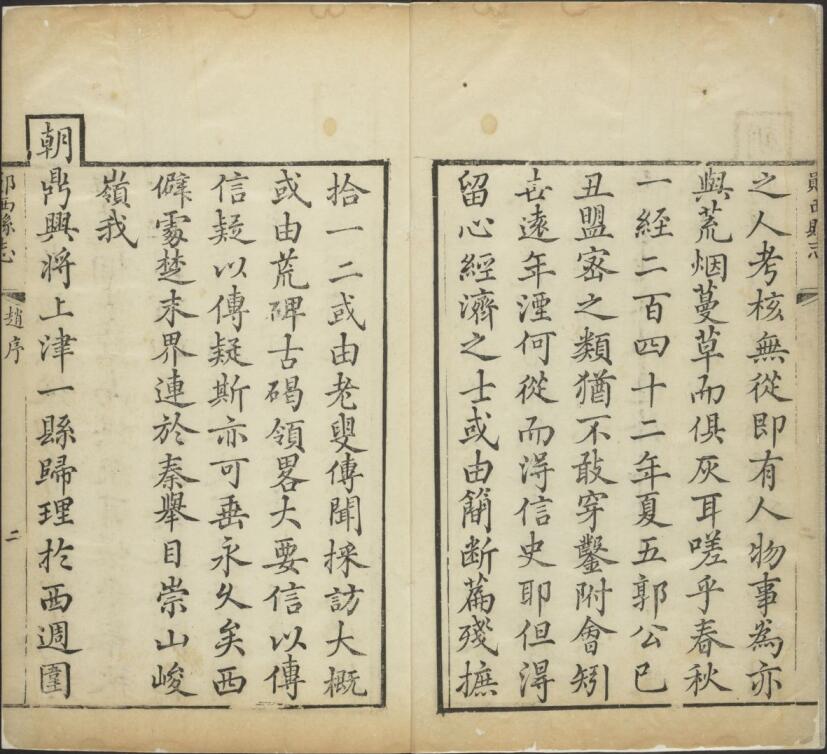 鄖西縣志
之人考核無從即有人物事為亦
與荒烟蔓草而俱灰耳嗟乎春秋
一經二百四十二年夏五郭公巳
丑盟密之類猶不敢穿鑿附會矧
世遠年湮何從而得信史耶但得
留心經濟之士或由簡断篇殘摭
拾一二或由老叟傳聞採訪大概
或由荒碑古碣領畧大要信以傳
信疑以傳疑斯亦可垂永久矣西
僻處楚末界連於秦舉目崇山峻
嶺我
朝鼎興将上津一縣歸理於西週圍
鄖西縣志 趙序 二